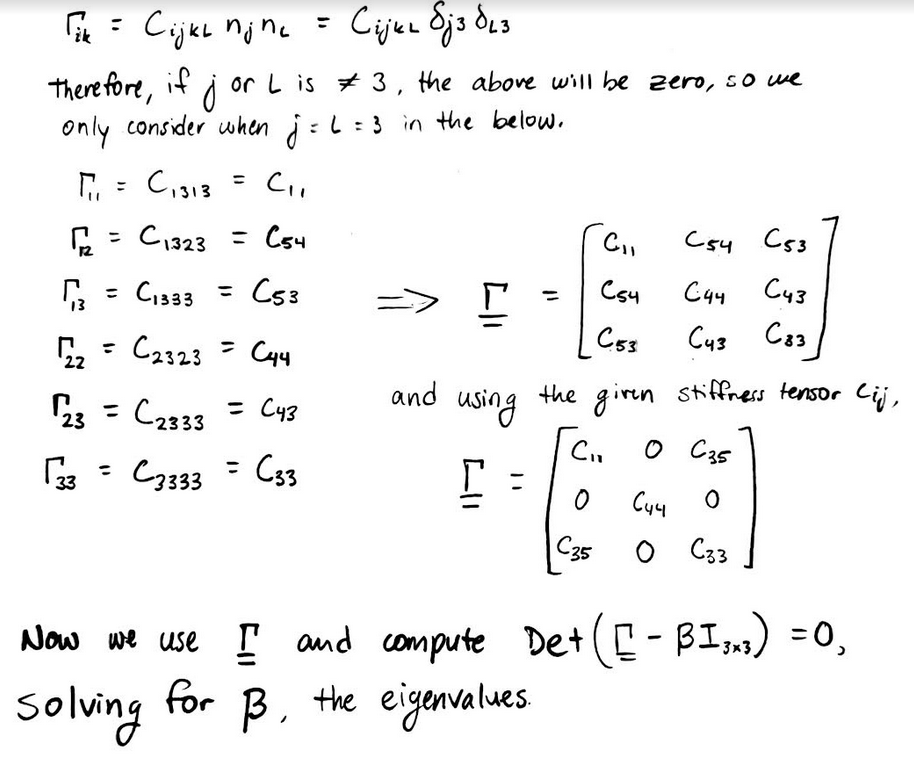 Γik = CijkL nj nL = CijkL δj3 δL3
therefore, if j or L is ≠ 3, the above will be zero, so we
only consider when j = L = 3 in the below.
Γ11 = C1313 = C11
Γ12 = C1323 = C54
Γ13 = C1333 = C53
Γ22 = C2323 = C44
Γ23 = C2333 = C43
Γ33 = C3333 = C33
=> Γ =
C11 C54 C53
C54 C44 C43
C53 C43 C33
and using the given stiffness tensor Cij,
Γ =
C11 0 C35
0 C44 0
C35 0 C33
Now we use Γ and compute Det(Γ - βI3x3) = 0,
solving for β, the eigenvalues.